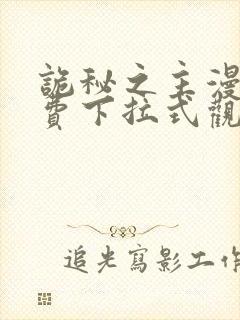 詭秘之主漫
費下拉式觀
追光寫影工作